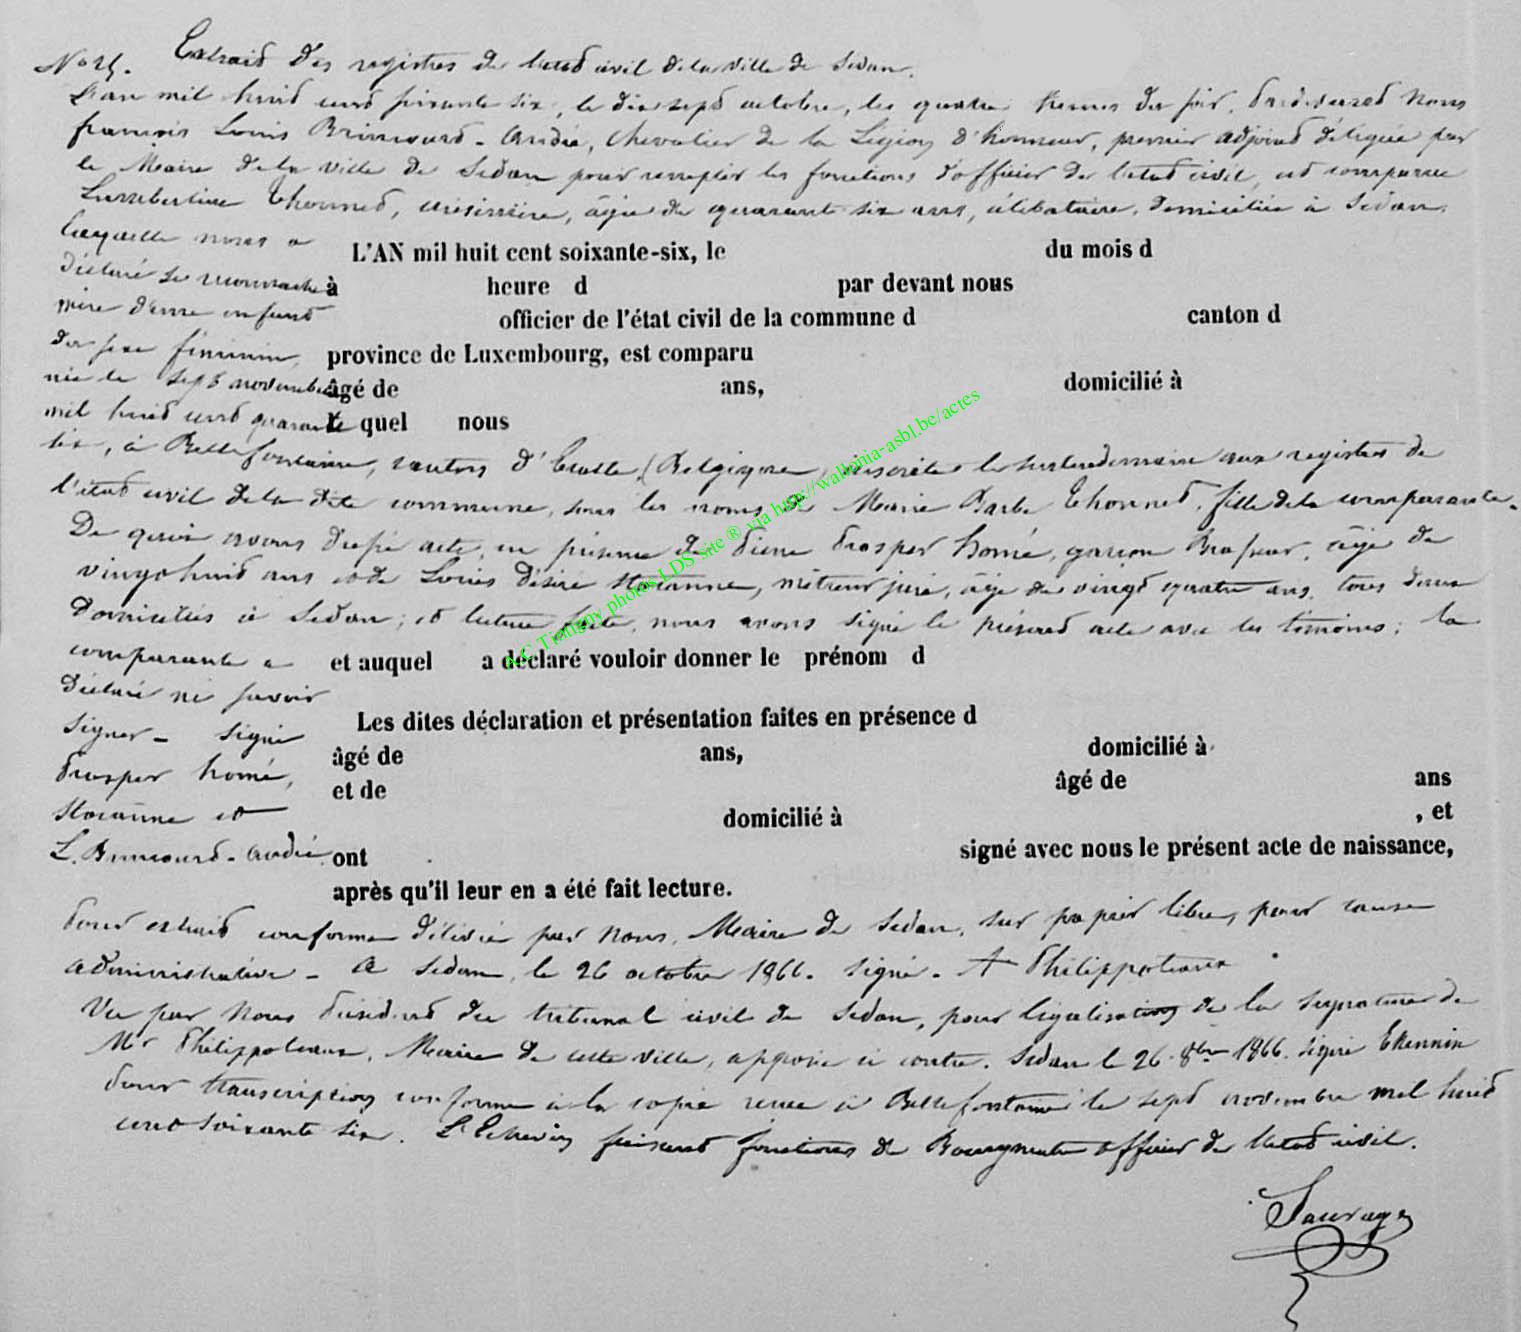 Extrait des registres de l'état civil de la ville de Sedan.
L'an mil huit cent soixante six, le dix sept octobre, les quatre heures du soir, pardevant Nous
françois Louis Brincourt - André, Chevalier de la Légion d'honneur, premier adjoint délégué par
le Maire de la ville de Sedan pour remplir les fonctions d'officier de l'état civil, est comparue
Lambertine Thonnet, cuisinière, âgée de quarante six ans, célibataire, domiciliée à Sedan,
laquelle nous a
L'AN mil huit cent soixante-six, le du mois d
déclaré se reconnaitre
à heure d par devant nous
mère d'une enfant
officier de l'état civil de la commune d canton d
du sexe féminin,
province de Luxembourg, est comparu
née le sept novembre
âgé de ans, domicilié à
mil huit cent quarante
quel nous
six, à Bellefontaine, canton d'Etalle (Belgique) inscrite le surlendemain aux registres de
l'état civil de la dite commune, sous les noms de Marie Barbe Thonnet, fille de la comparante.
De quoi avons dressé acte, en présence de Pierre Prosper homé, garçon Brasseur, âgé de
vingt huit ans et de Louis Désiré, métreur juré, âgé de vingt quatre ans, tous deux
domiciliés à Sedan; et lecture faite, nous avons signé le présent acte avec les témoins; la
comparante a
et auquel a déclaré vouloir donner le prénom d
déclaré ne savoir
signer - signé
Les dites déclaration et présentation faites en présence d
prosper homé,
âgé de ans, domicilié à
et de âgé de ans
et
domicilié à , et
L. Brincourt - André
ont signé avec nous le présent acte de naissance,
après qu'il leur en a été fait lecture.
Pour extrait conforme délivré par Nous, Maire de Sedan, sur papier libre, pour cause
administrative - A Sedan, le 26 octobre 1866. signé - A Philippoteaux
Vu par Nous Président du tribunal civil de Sedan, pour légalisation de la signature de
Mr Philippoteaux, Maire de cette ville, apposée ci contre. Sedan le 26 8bre 1866. signé
Pour transcription conforme à la copie reçue à Bellefontaine le sept novembre mil huit
cent soixante six. L'Echevin faisant fonctions de Bourgmestre officier de l'état civil.
Sauvage
A.C Tintigny photos LDS Site ® via http://wallonia-asbl.be/actes